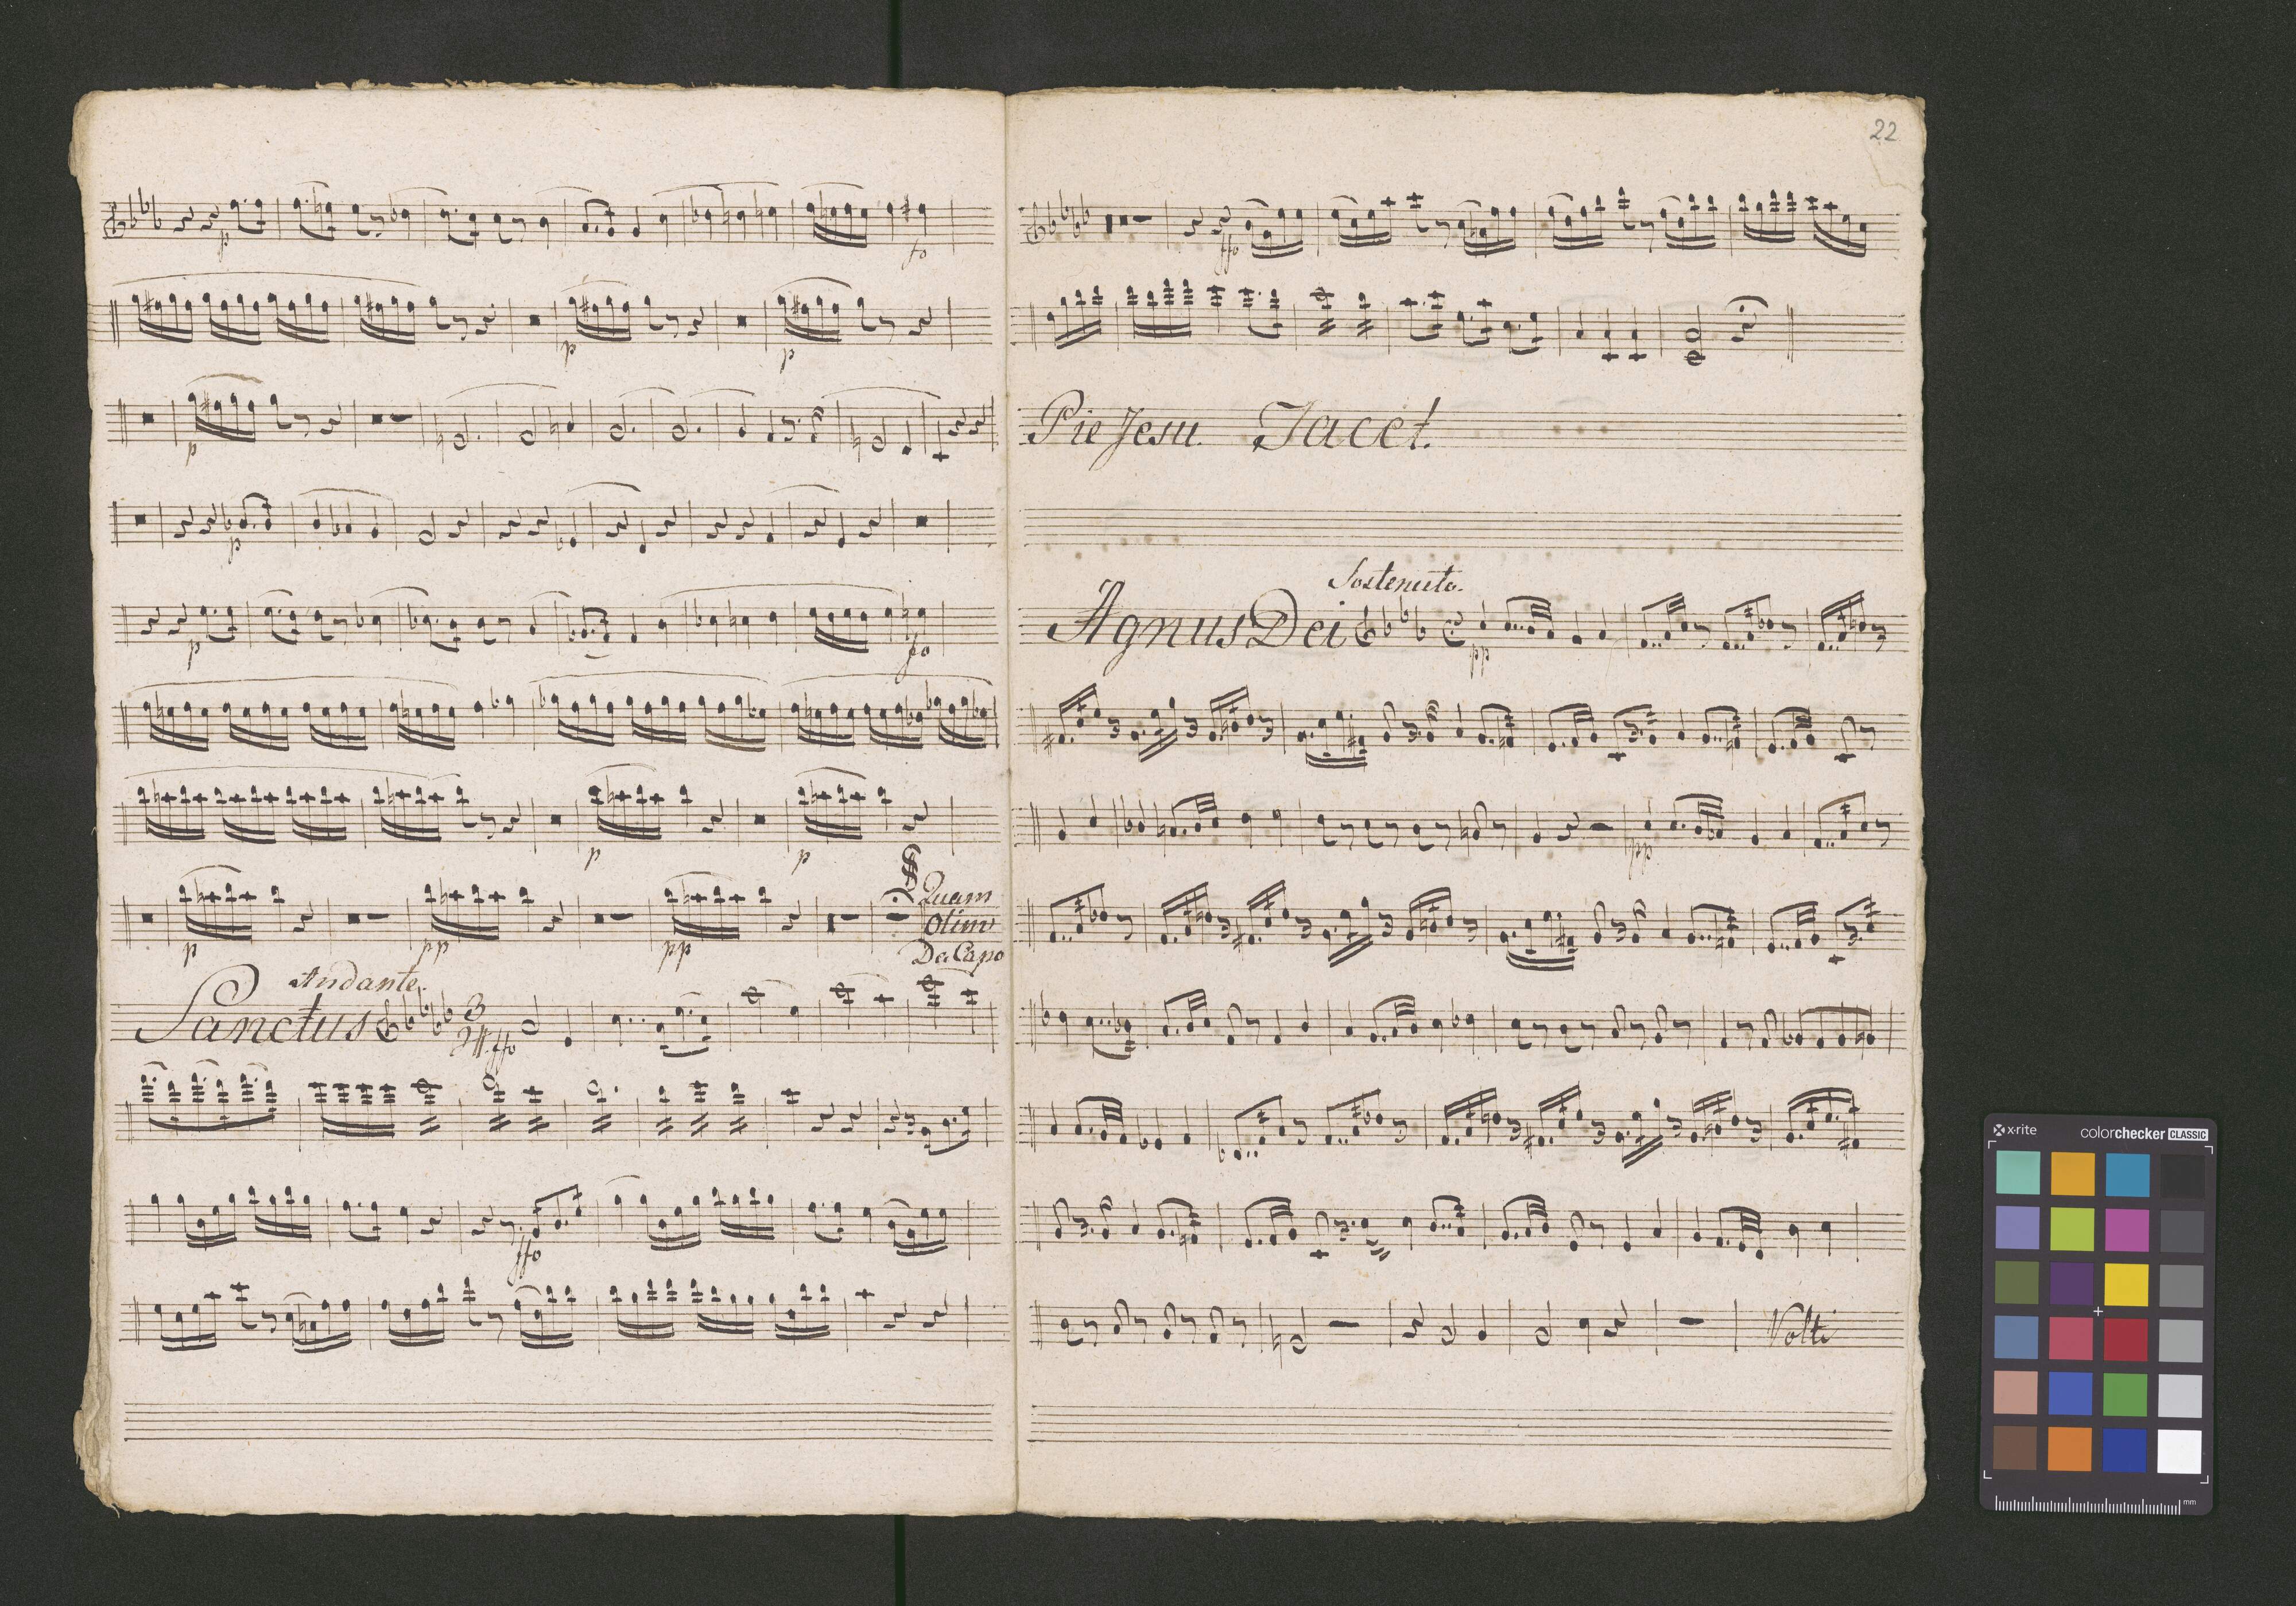 p
fo
p
p
p
p
p
fo
p
p
Quam
Olim
Da Capo
p
pp
pp
Andante.
Sanctus
3
ffo
ffo
22
ffo
Pie Jesu. Tacet.
Sostenuto.
Agnus Dei
pp
pp
Volti
x-rite
colorchecker CLASSIC
mm